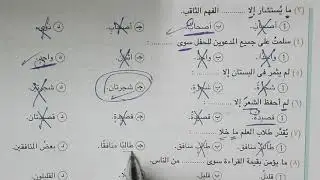 (٣) ما يُستشار إلا .......... الفهم الثاقب.
أ أصحابَ. ب أصحابُ. ج أصحابِ.
(٤) سلمتُ على جميع المدعوين للحفل سوى ..........
واحدٍ. د واحدًا.
(٥) لم يثمر في البستان إلا ..........
شجرتان. د شجرتين.
(٦) لم أحفظ الشعرَ إلا ..........
أ قصيدةً. ب قصيدةٌ. ج قصيدةٍ. د قصيدتان.
(٧) يُقدَّر طلاب العلم ما خلا ..........
ب طالبٍ منافق. ج طالبًا منافقًا. د بعضُ المنافقين.
(٨) ما يؤمن بقيمة القراءة سوى .......... من الناس.
أ قليلٌ. ب قليلٍ. د القليلون.